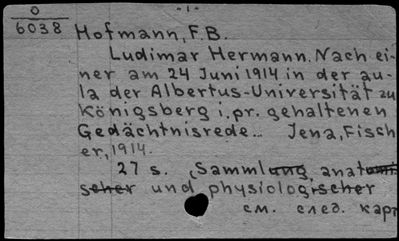 O
6038
-1-
Hofmann, F.B.
Ludimar Hermann. Nach ei-
ner am 24 Juni 1914 in der au-
la der Albertus-Universität zu
Königsberg i. pr. gehaltenen
Gedächtnisrede... Jena, Fisch
er, 1914.
27 s. (Sammlung anatomi
scher und physiologischer
см. след. карт